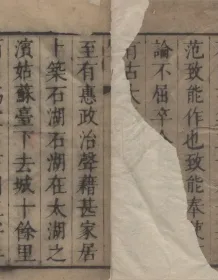 范致能作也致能奉使
論不屈卒
南古大
至有惠政治聲藉甚家居
上築石湖石湖在太湖之
濱姑蘇臺下去城十餘里